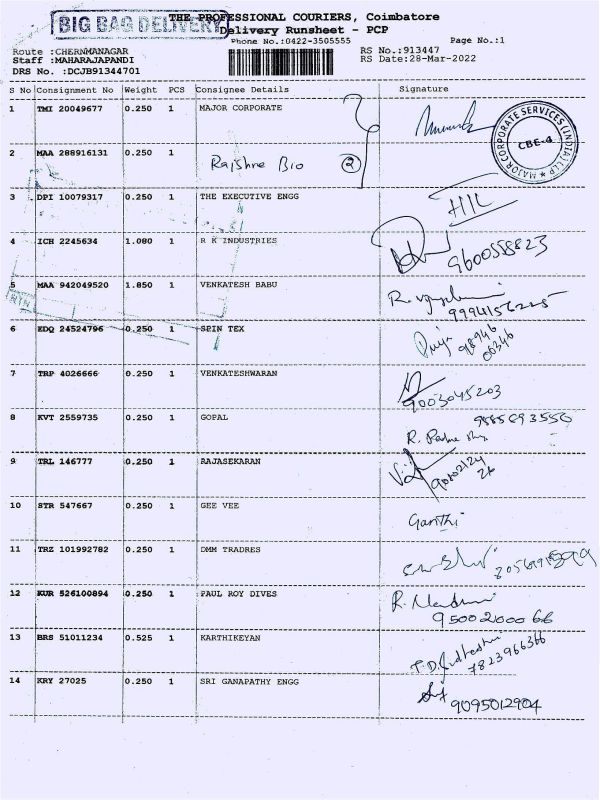 BIG BAG DELIVERY
THE PROFESSIONAL COURIERS, Coimbatore
Delivery Runsheet - PCP
Phone No.:0422-3505555 Page No.:1
Route :CHERNMANAGAR RS No.:913447
Staff :MAHARAJAPANDI RS Date:28-Mar-2022
DRS No. :DCJB91344701
S No Consignment No Weight PCS Consignee Details Signature
1 TMI 20049677 0.250 1 MAJOR CORPORATE
MAJOR CORPORATE SERVICES (INDIA) LLP
CBE-4
2 MAA 288916131 0.250 1 Rajshree Bio 2
3 DPI 10079317 0.250 1 THE EXECUTIVE ENGG HIL
4 ICH 2245634 1.080 1 R K INDUSTRIES 9600558823
5 MAA 942049520 1.850 1 VENKATESH BABU
RTN
6 EDQ 24524796 0.250 1 SPIN TEX
7 TRP 4026666 0.250 1 VENKATESHWARAN 9003045203
8 KVT 2559735 0.250 1 GOPAL
9 TRL 146777 0.250 1 RAJASEKARAN
10 STR 547667 0.250 1 GEE VEE
11 TRZ 101992782 0.250 1 DMM TRADRES
12 KUR 526100894 0.250 1 PAUL ROY DIVES 9500210066
13 BRS 51011234 0.525 1 KARTHIKEYAN 7823966366
14 KRY 27025 0.250 1 SRI GANAPATHY ENGG 9095012904